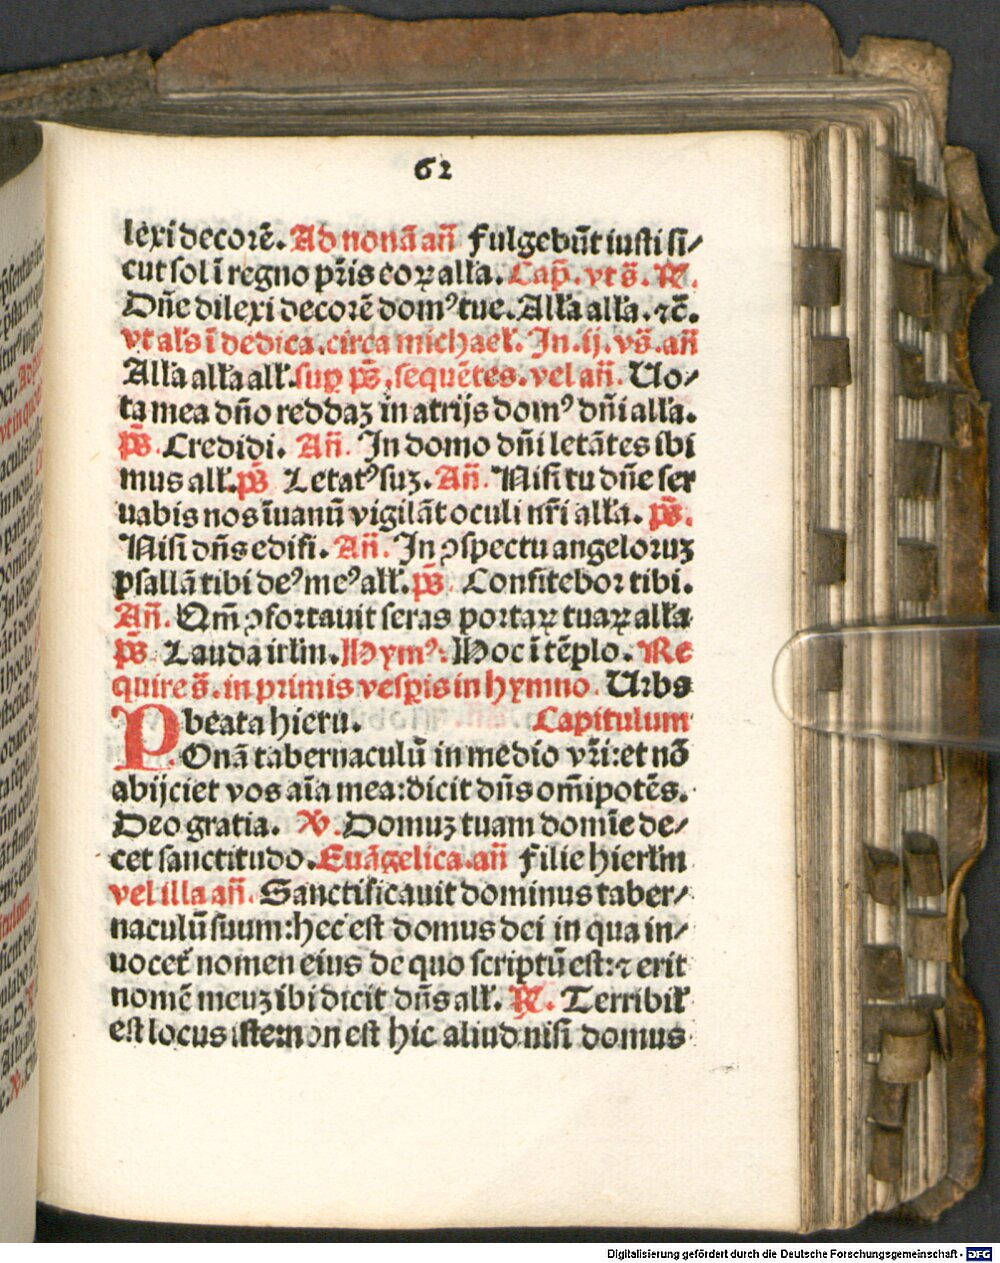 62
lexi decorē. Ad nonā añ Fulgebūt iusti si⸗
cut sol ī regno pr̄is eoꝝ all'a. Cap̄. vt s̄. ℟.
Dn̄e dilexi decorē domꝰ tue. All'a all'a. ⁊c̄.
vt al's ī dedica. circa michael'. In .ij. vs̄. añ
All'a all'a all'. sup̲ ps̄. sequētes. vel añ. Uo⸗
ta mea dn̄o reddaꝫ in atrijs domꝰ dn̄i all'a.
ps̄. Credidi. Añ. In domo dn̄i letātes ibi
mus all'. ps̄ Letatꝰ suꝫ. Añ. Nisi tu dn̄e ser
uabis nos īuanū vigilāt oculi nr̄i all'a. ps̄.
Nisi dn̄s edifi. Añ. In ꝯspectu angeloruꝫ
psallā tibi deꝰ meꝰ all'. ps̄. Confitebor tibi.
Añ. Qm̄ ꝯfortauit seras portaꝝ tuaꝝ all'a
ps̄. Lauda irl'm. Hymꝰ: Hoc ī tēplo. Re
quire s̄. in primis vesp̲is in hymno. Urbs
beata hieru. Capitulum
POnā tabernaculū in medio vr̄i: et nō
abijciet vos aīa mea: dicit dn̄s om̄ipotēs.
Deo gratia. ℣. Domuꝫ tuam domīe de⸗
cet sanctitudo. Euāgelica. añ Filie hierl'm
vel illa añ. Sanctificauit dominus taber⸗
naculū suum: hec est domus dei in qua in⸗
uocet' nomen eius de quo scriptū est: ⁊ erit
nomē meuꝫ ibi dicit dn̄s all'. ℟. Terribil'
est locus iste: non est hic aliud nisi domus
Digitalisierung gefördert durch die Deutsche Forschungsgemeinschaft - DFG